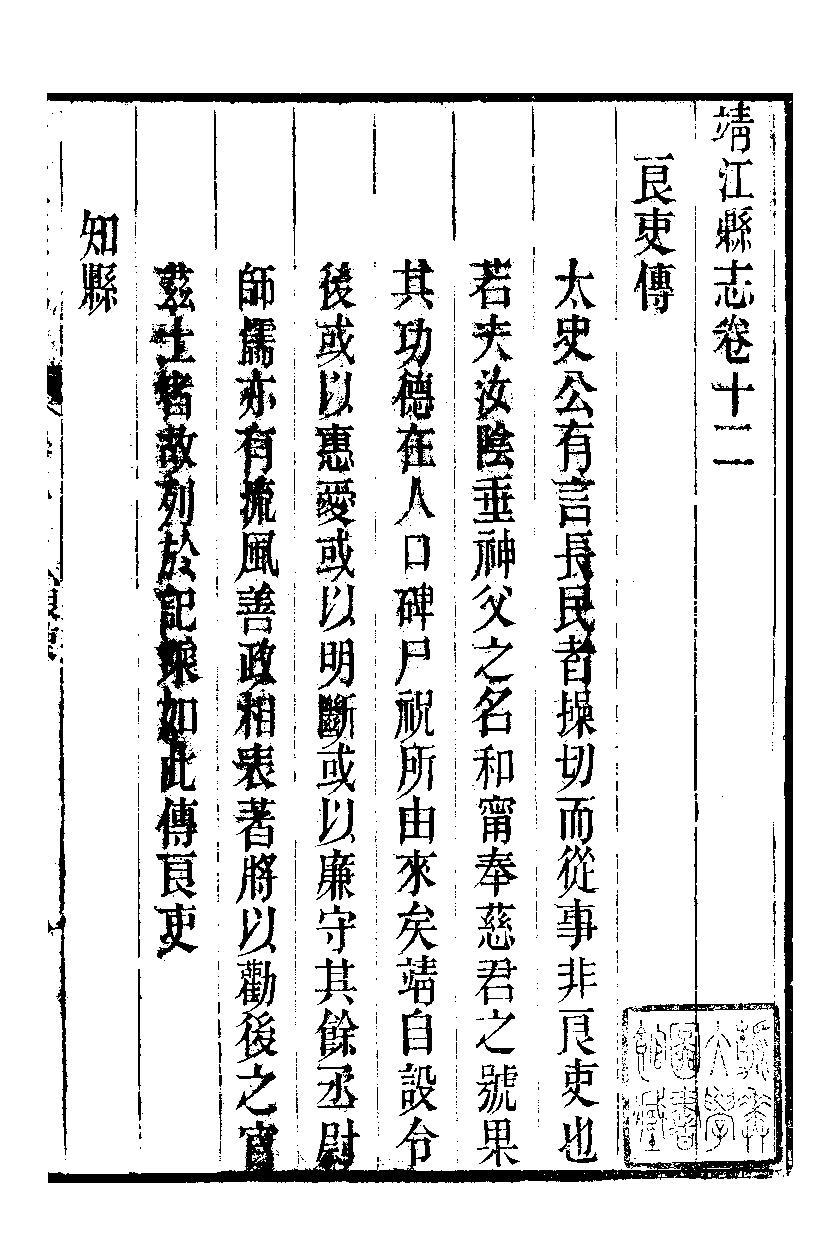 靖江縣志卷十二
良吏傳
太史公有言長民者操切而從事非良吏也
若夫汝陰垂神父之名和甯奉慈君之號果
其功德在人口碑尸祝所由來矣靖自設令
後或以惠愛或以明斷或以廉守其餘丞尉
師儒亦有流風善政相表著將以勸後之官
茲土者故列於記乘如此傳良吏
知縣
良吏
燕京大學圖書館藏